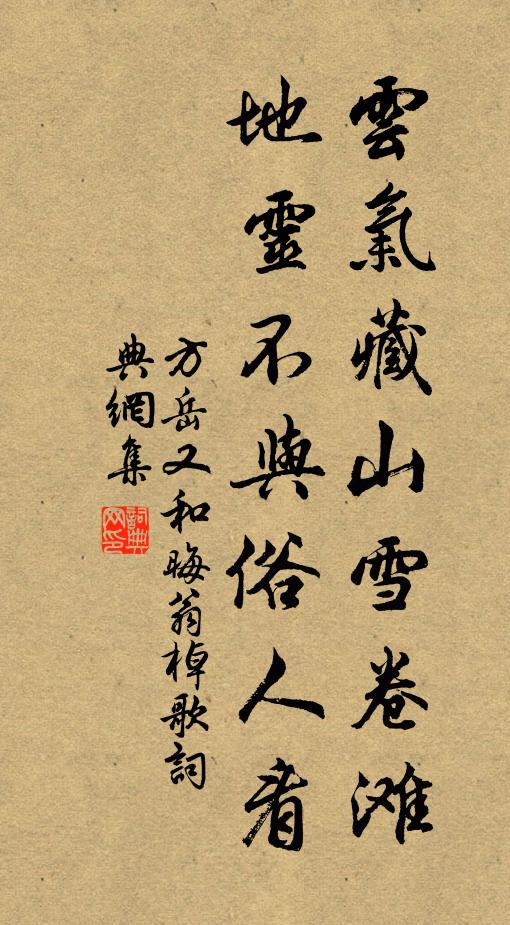 雲氣藏山雪卷滩
地靈不與俗人看
方岳又和晦翁棹歌詞
典網集
詞典网印